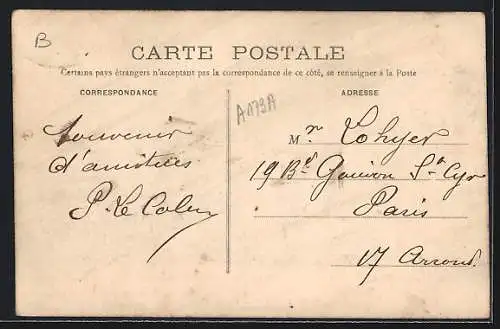 B
CARTE POSTALE
Certains pays étrangers n'acceptant pas la correspondance de ce côté, se renseigner à la Poste
CORRESPONDANCE
ADRESSE
A173A
Souvenir
d'amitiés
P. Le
Mr Lohyer
19 Bd Gouvion St Cyr
Paris
17 Arrond.